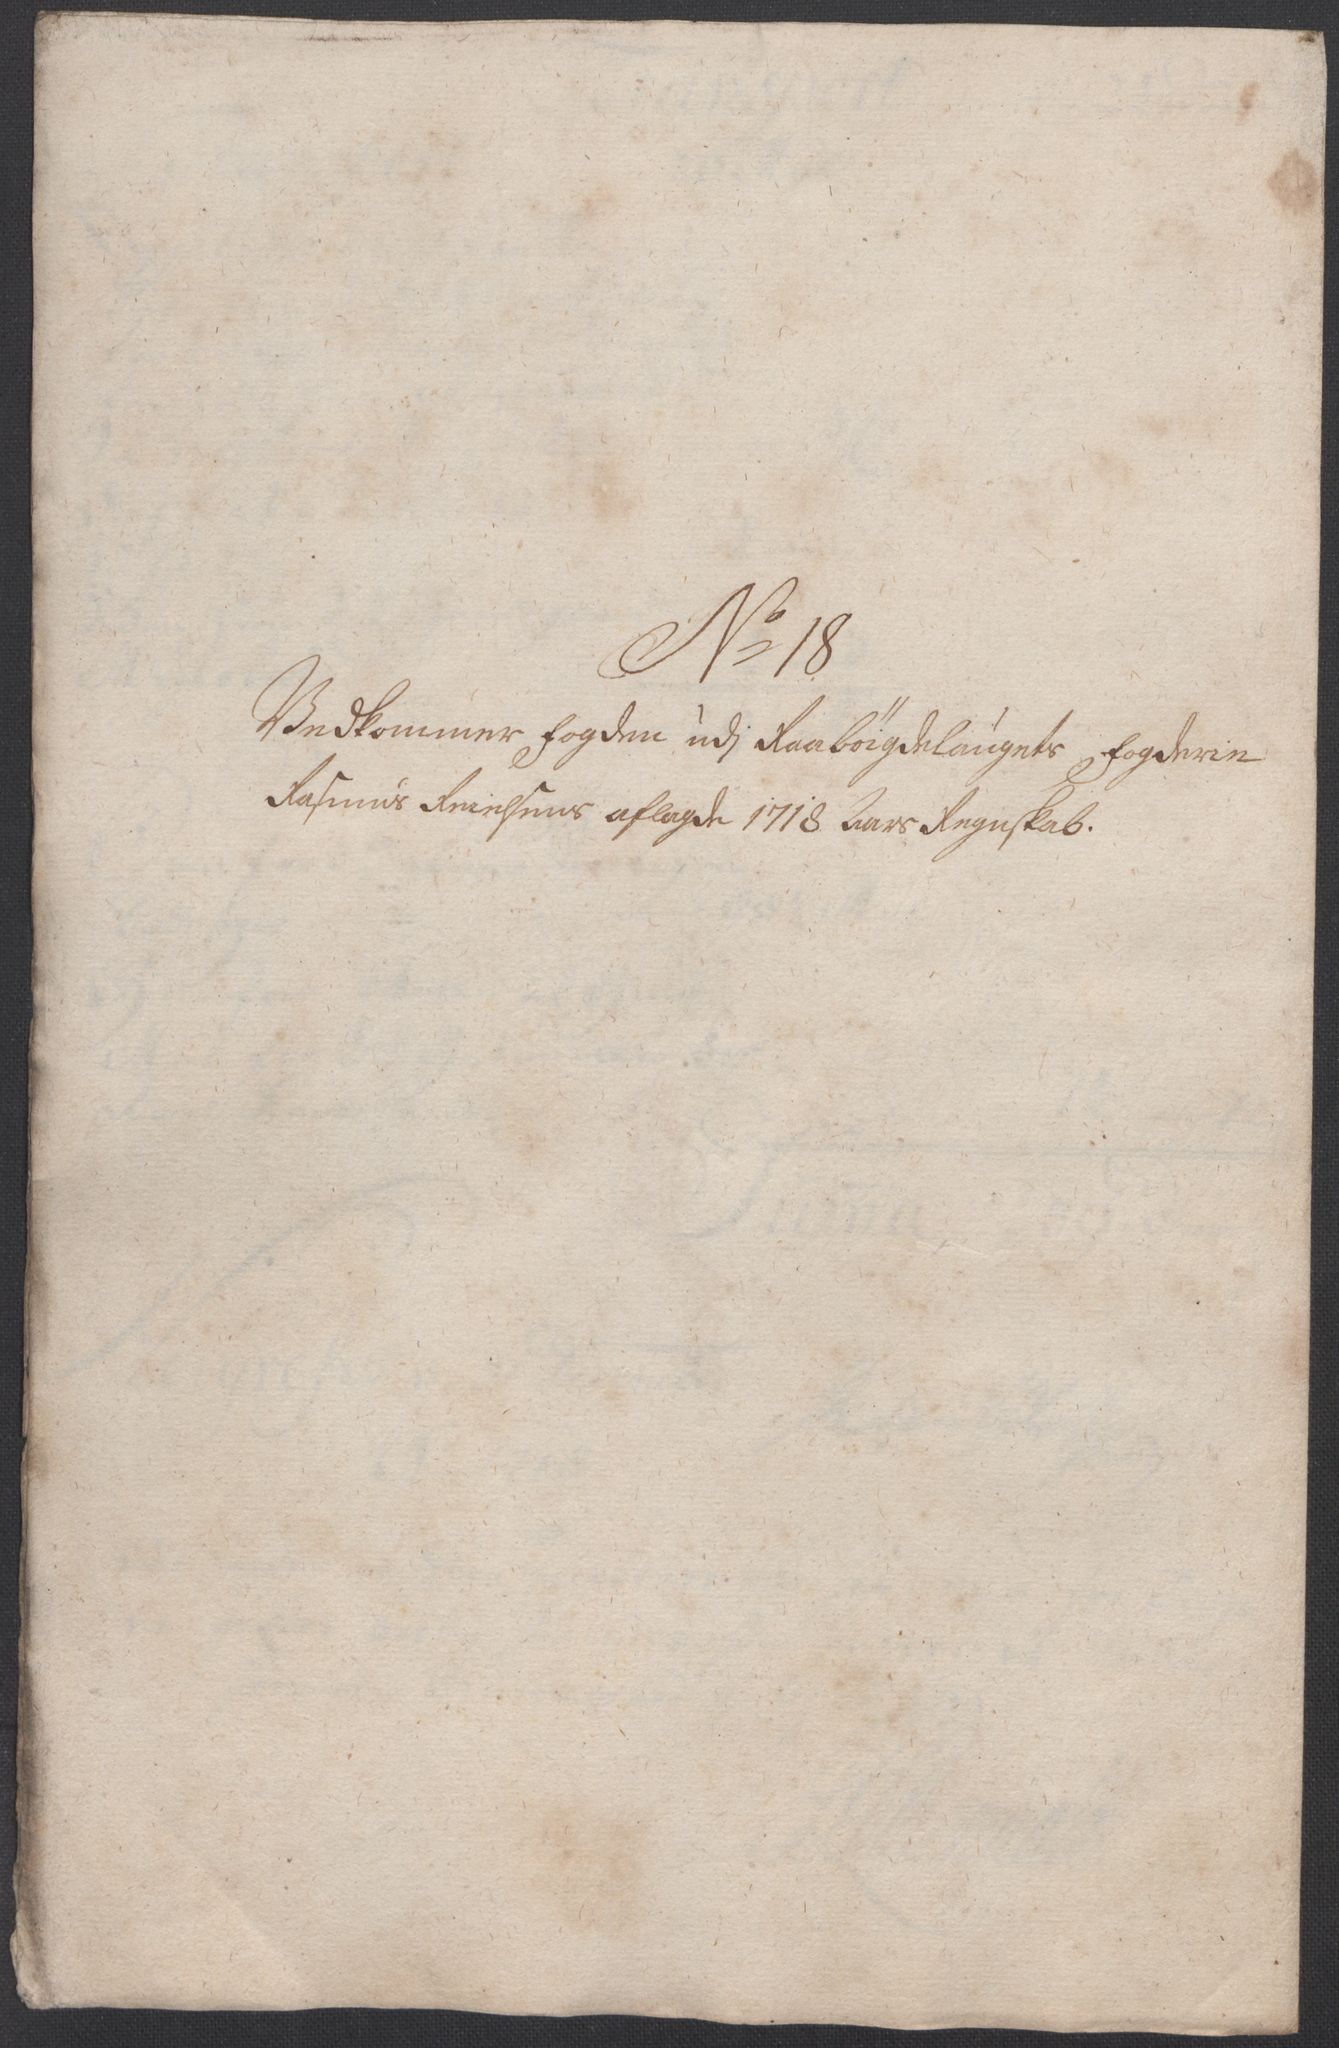 No 18
Vedkommer fogden udj Raabøigdelaugets fogderie
Rasmus aflagde 1718 Aars Regnskab.